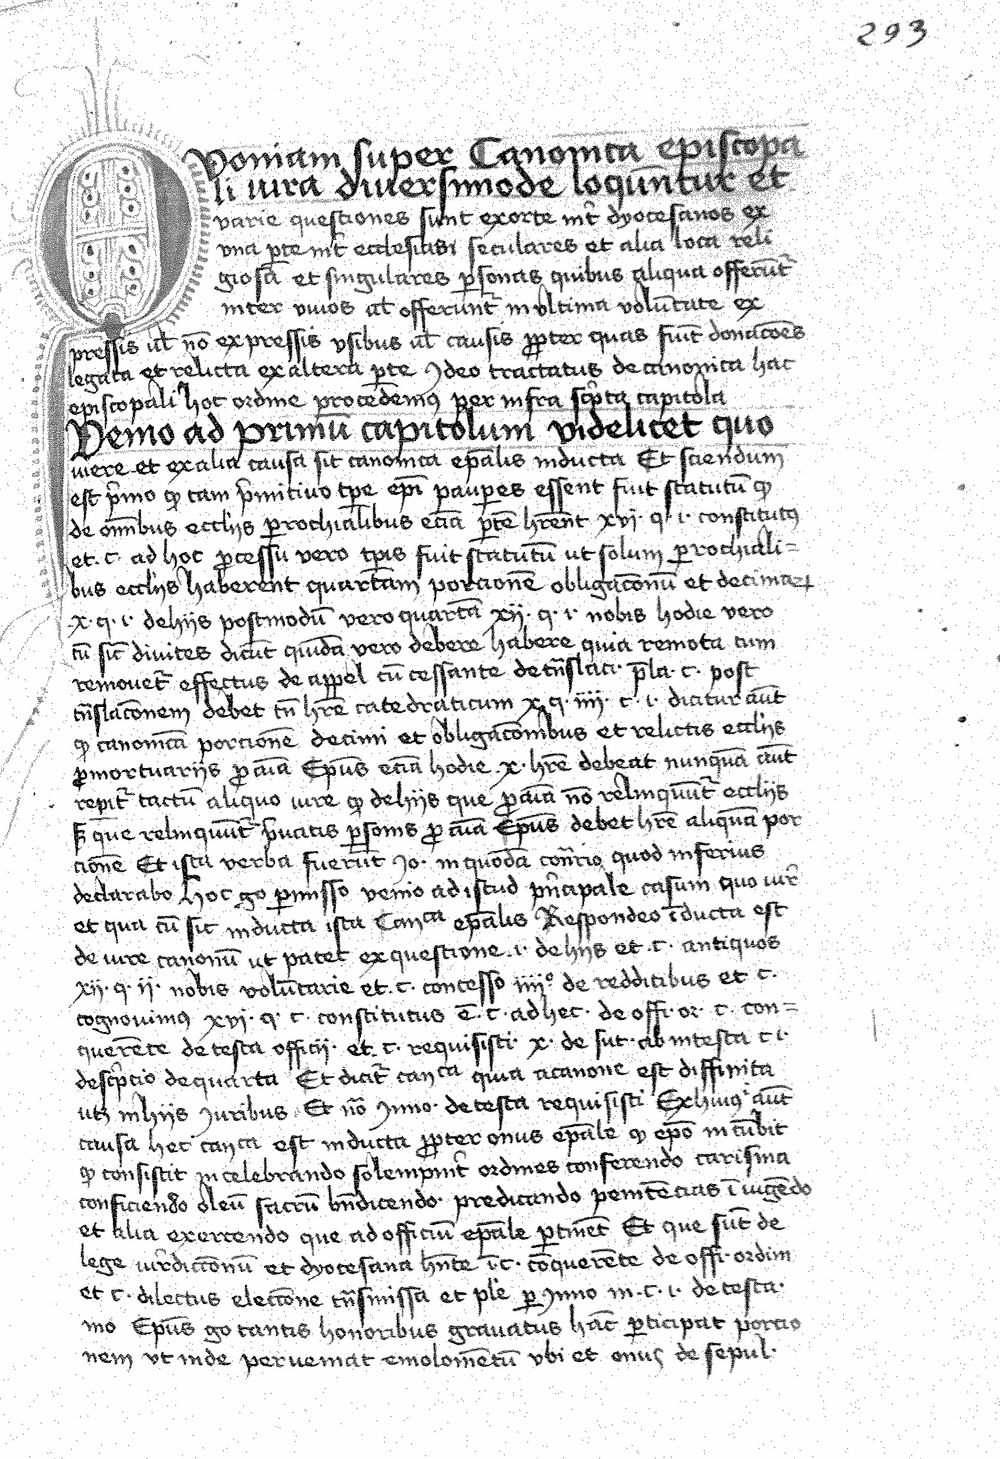 293
Quoniam super Canonica episcopa
li iura diuersimode loqūntur et
varie questiones sunt exorte int̄ dyocesanos ex
vna ꝑte int̄ ecclesiasi seculares et alia loca reli
giosa et singulares ꝑsonas quibus aliqua offerūt̄
inter viuos ał offerunt̄ in vltima volūtate ex
pressis ał nō expressis vsibus ał causis ꝓpter quas fiūt donacōes
legata et relicta ex altera ꝑte Ideo tractatus de canonica hac
episcopali hoc ordine procedemꝰ per infra sc̄pta capitola
Venio ad primū capitolum videlicet quo
iure et ex alia causa sit canonica epālis inducta Et sciendum
est p̄mo ꝙ tam p̄mitiuo tꝑe ep̄i pauꝑes essent fuit statutū ꝙ
de om̄ibus eccl̄iis ꝑrochialibus eciā ꝑtē hr̄ent xvi· q· i· constitutꝰ
et· c· ad hoc ꝓcessu vero tp̄is fuit statutū ut solum ꝑrochiali=
bus eccl̄iis haberent quartam porcionē obligacōnū et decimaꝝ
x· q· i· de hiis postmodū vero quarta xii· q· i· nobis hodie vero
cū sūt diuites dicūt quidā vero debere habere quia remota cām
remouet̄ effectus de appel cū cessante de tn̄slaci· p̄la· c· post
tn̄slacōnem debet tn̄ hr̄e catedraticum x· q· iiii· c· i· dicitur aūt
ꝙ canonicā porcionē decimi et obligacōnibus et relictis eccl̄iis
ꝓ mortuariis ꝓ aīa Ep̄us eciā hodie· x· hr̄e debeat nunquā aūt
repit̄ tactū aliquo iure ꝙ de hiis que ꝓ aīa nō relinquūt̄ eccl̄iis
sꝫ que relinquūt̄ p̄uatis ꝑsonis ꝓ aīa Ep̄us debet hr̄e aliquā por
cionē Et ista verba fuerūt Io· in quodā cōn̄cio quod inferius
declarabo Hoc g̊o p̄misso venio ad istud pn̄cipale casum quo iur̄
et qua cū sit inducta ista Canᶜᵃ epālis Respondeo īducta est
de iure canonū ut patet ex questione· i· de hiis et· c· antiquos
xii· q· ii· nobis volūtarie et· c· concesso iiii° de redditibus et c·
cognouimꝰ xvi· q· c· constitutus ē· c· ad hec· de offi· or· c· con=
querēte de testa officii· et· c· requisisti· x· de suc· ab intesta c i·
desc̄ptio de quarta Et dicit̄ canᶜᵃ quia a canone est diffinita
utꝫ in hiis Iuribus· Et nō Inno· de testa requisisti Ex huiꝰ aūt
causa hec canᶜᵃ est inducta ꝓpter onus epāle ꝙ epō incūbit
ꝙ consistit in celebrando solempnit̄ ordines conferendo carisma
conficiendo oleū sacrū bn̄dicendo· predicando penitēcias īiūgēdo
et alia exercendo que ad officiū epāle ꝑtinēt Et que sūt de
lege iur̄diccōnū et dyocesana hn̄te ī· c· cōquerēte de offi· ordin
et c· dilectus eleccōne tn̄smissa et plē ꝑ Inno in· c· i· de testa·
mo Ep̄us g̊o tantis honoribus grauatus hāc ꝑticipat porcio
nem ut inde perueniat emolomētū vbi et onus de sepul·